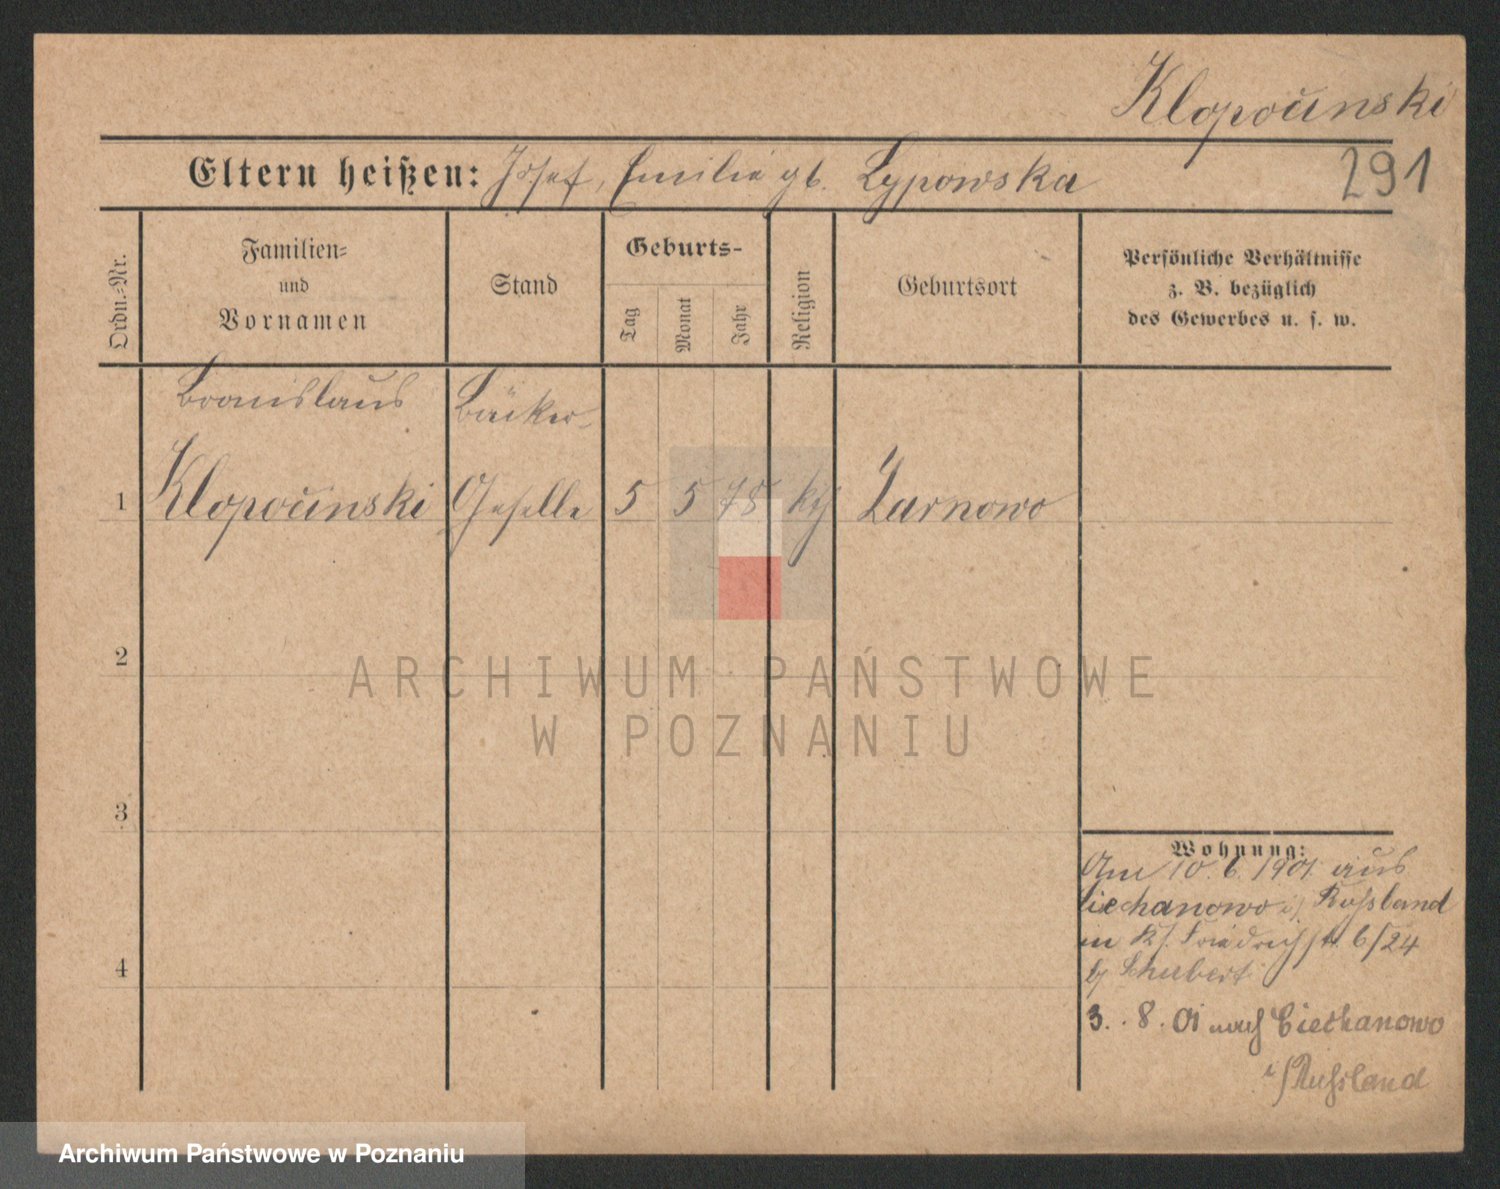 Klopocinski
291
Eltern heißen: Josef, Emilie gb. Lypowska
Ordn.-Nr.
Familien-
und
Vornamen
Stand
Geburts-
Tag
Monat
Jahr
Religion
Geburtsort
Persönliche Verhältnisse
z. B. bezüglich
des Gewerbes u. s. w.
Bronislaus Bäcker-
1 Klopocinski Geselle 5 5 78 kth Zarnowo
2
3
4
Wohnung:
Am 10. 6. 1901 aus
Ciechanowo i/ Russland
in Kf. Friedrichstr. 6/24
bj Schubert
3. 8. 01 nach Ciechanowo
i/Russland
ARCHIWUM PAŃSTWOWE
W POZNANIU
Archiwum Państwowe w Poznaniu